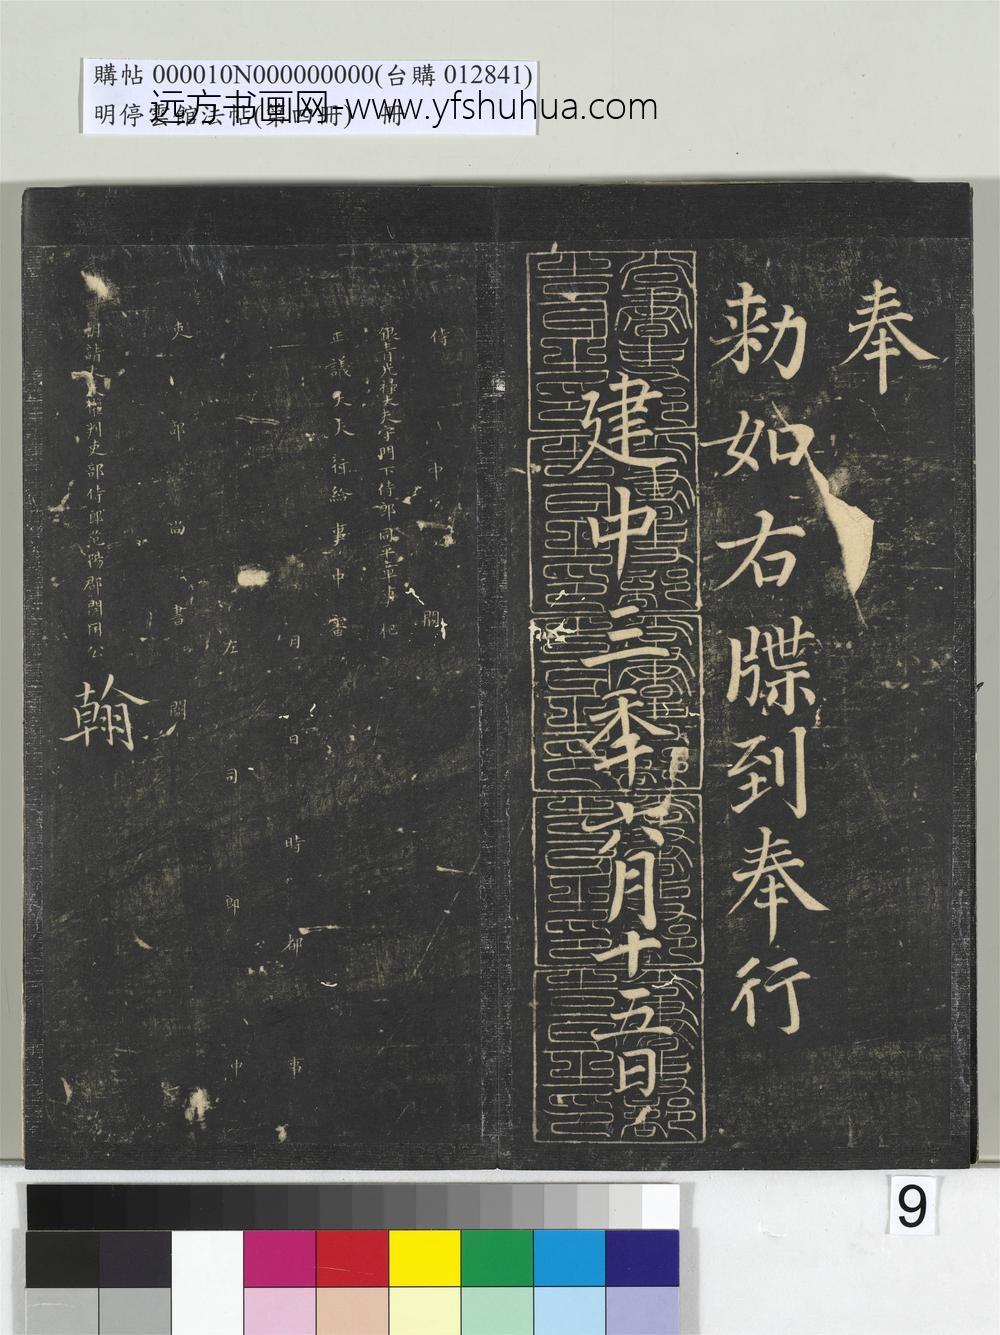 購帖 000010N000000000(台購 012841)
明停雲館法帖(第四冊) 冊
远方书画网-www.yfshuhua.com
奉
勅如右牒到奉行
建中三年六月十五日
侍中 闕
銀青光祿大夫守門下侍郎同平章事 杞
正議大夫行給事中審
月日時都事
左司郎中
吏部尚書 闕
朝請大夫權判吏部侍郎范陽郡開國公 翰
9